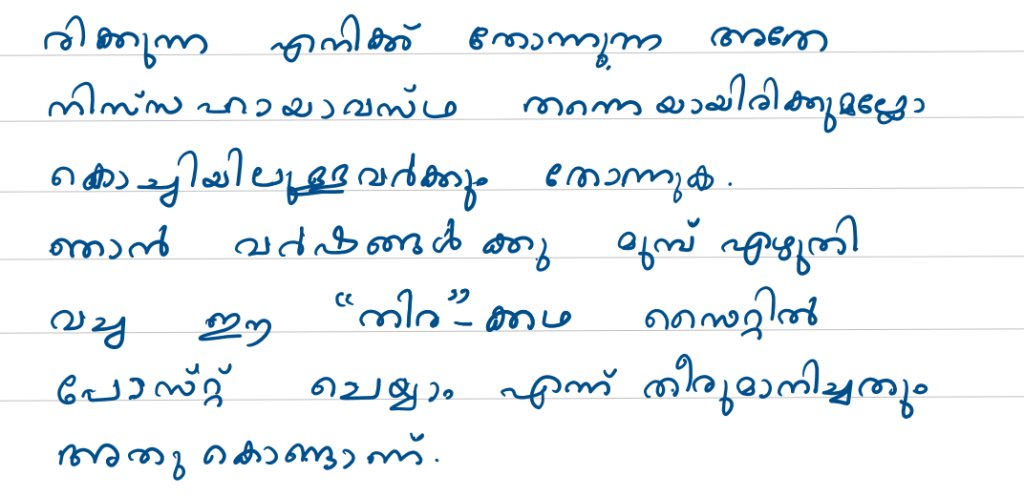 രിക്കുന്ന എനിക്ക് തോന്നുന്ന അതേ
നിസ്സഹായാവസ്ഥ തന്നെയായിരിക്കുമല്ലോ
കൊച്ചിയിലുള്ളവർക്കും തോന്നുക.
ഞാൻ വർഷങ്ങൾക്കു മുമ്പ് എഴുതി
വച്ച ഈ “തിര”-ക്കഥ സൈറ്റിൽ
പോസ്റ്റ് ചെയ്യാം എന്ന് തീരുമാനിച്ചതും
അതുകൊണ്ടാണ്.